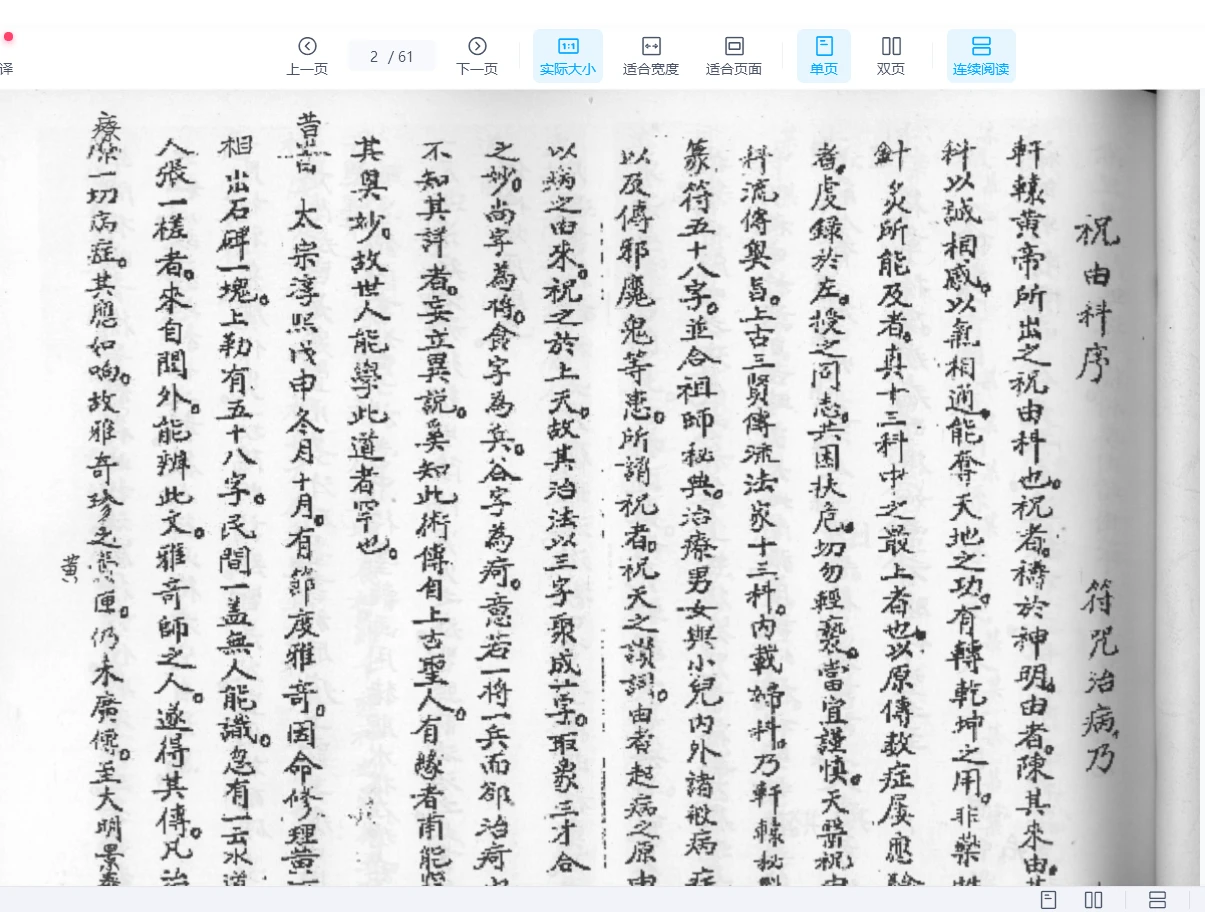 译
上一页
2 / 61
下一页
1:1
实际大小
适合宽度
适合页面
单页
双页
连续阅读
祝由科序 符咒治病，乃
軒轅黃帝所出之祝由科也。祝者。禱於神明。由者。陳其來由。
科以誠相感。以氣相通。能奪天地之功。有轉乾坤之用。非藥
針灸所能及者。真十三科中之最上者也。以原傳救症屡應驗
者。虔録於左。授之同志。共困扶危。切勿輕褻。當宜謹慎。天醫祝由
科流傳奥旨。上古三賢傳流法家十三科。内載婦科。乃軒轅秘
篆符五十八字。並合祖師秘典。治療男女與小兒内外諸般病症
以及傳邪魔鬼等患。所謂祝者。祝天之讚詞。由者起病之原由
以病之由來。祝之於上天。故其治法以三字聚成一字。取象三才合
之妙。尚字為将。食字為兵。谷字為疴。意若一将一兵而卻治疴
不知其詳者。妄立異說。奚知此術傳自上古聖人。有緣者南能
其奥妙。故世人能學此道者罕也。
昔 太宗淳熙戊申冬月十月。有節度雅奇。因命修理黄
相出石碑一塊。上勒有五十八字。民間一盖無人能識。忽有一云水道
人張一槎者。來自閣外。能辨此文。雅奇師之人。遂得其傳。凡治
療 一切病症。其應如响。故雅奇珍之 匣。仍未廣傳。至大明景泰
黄